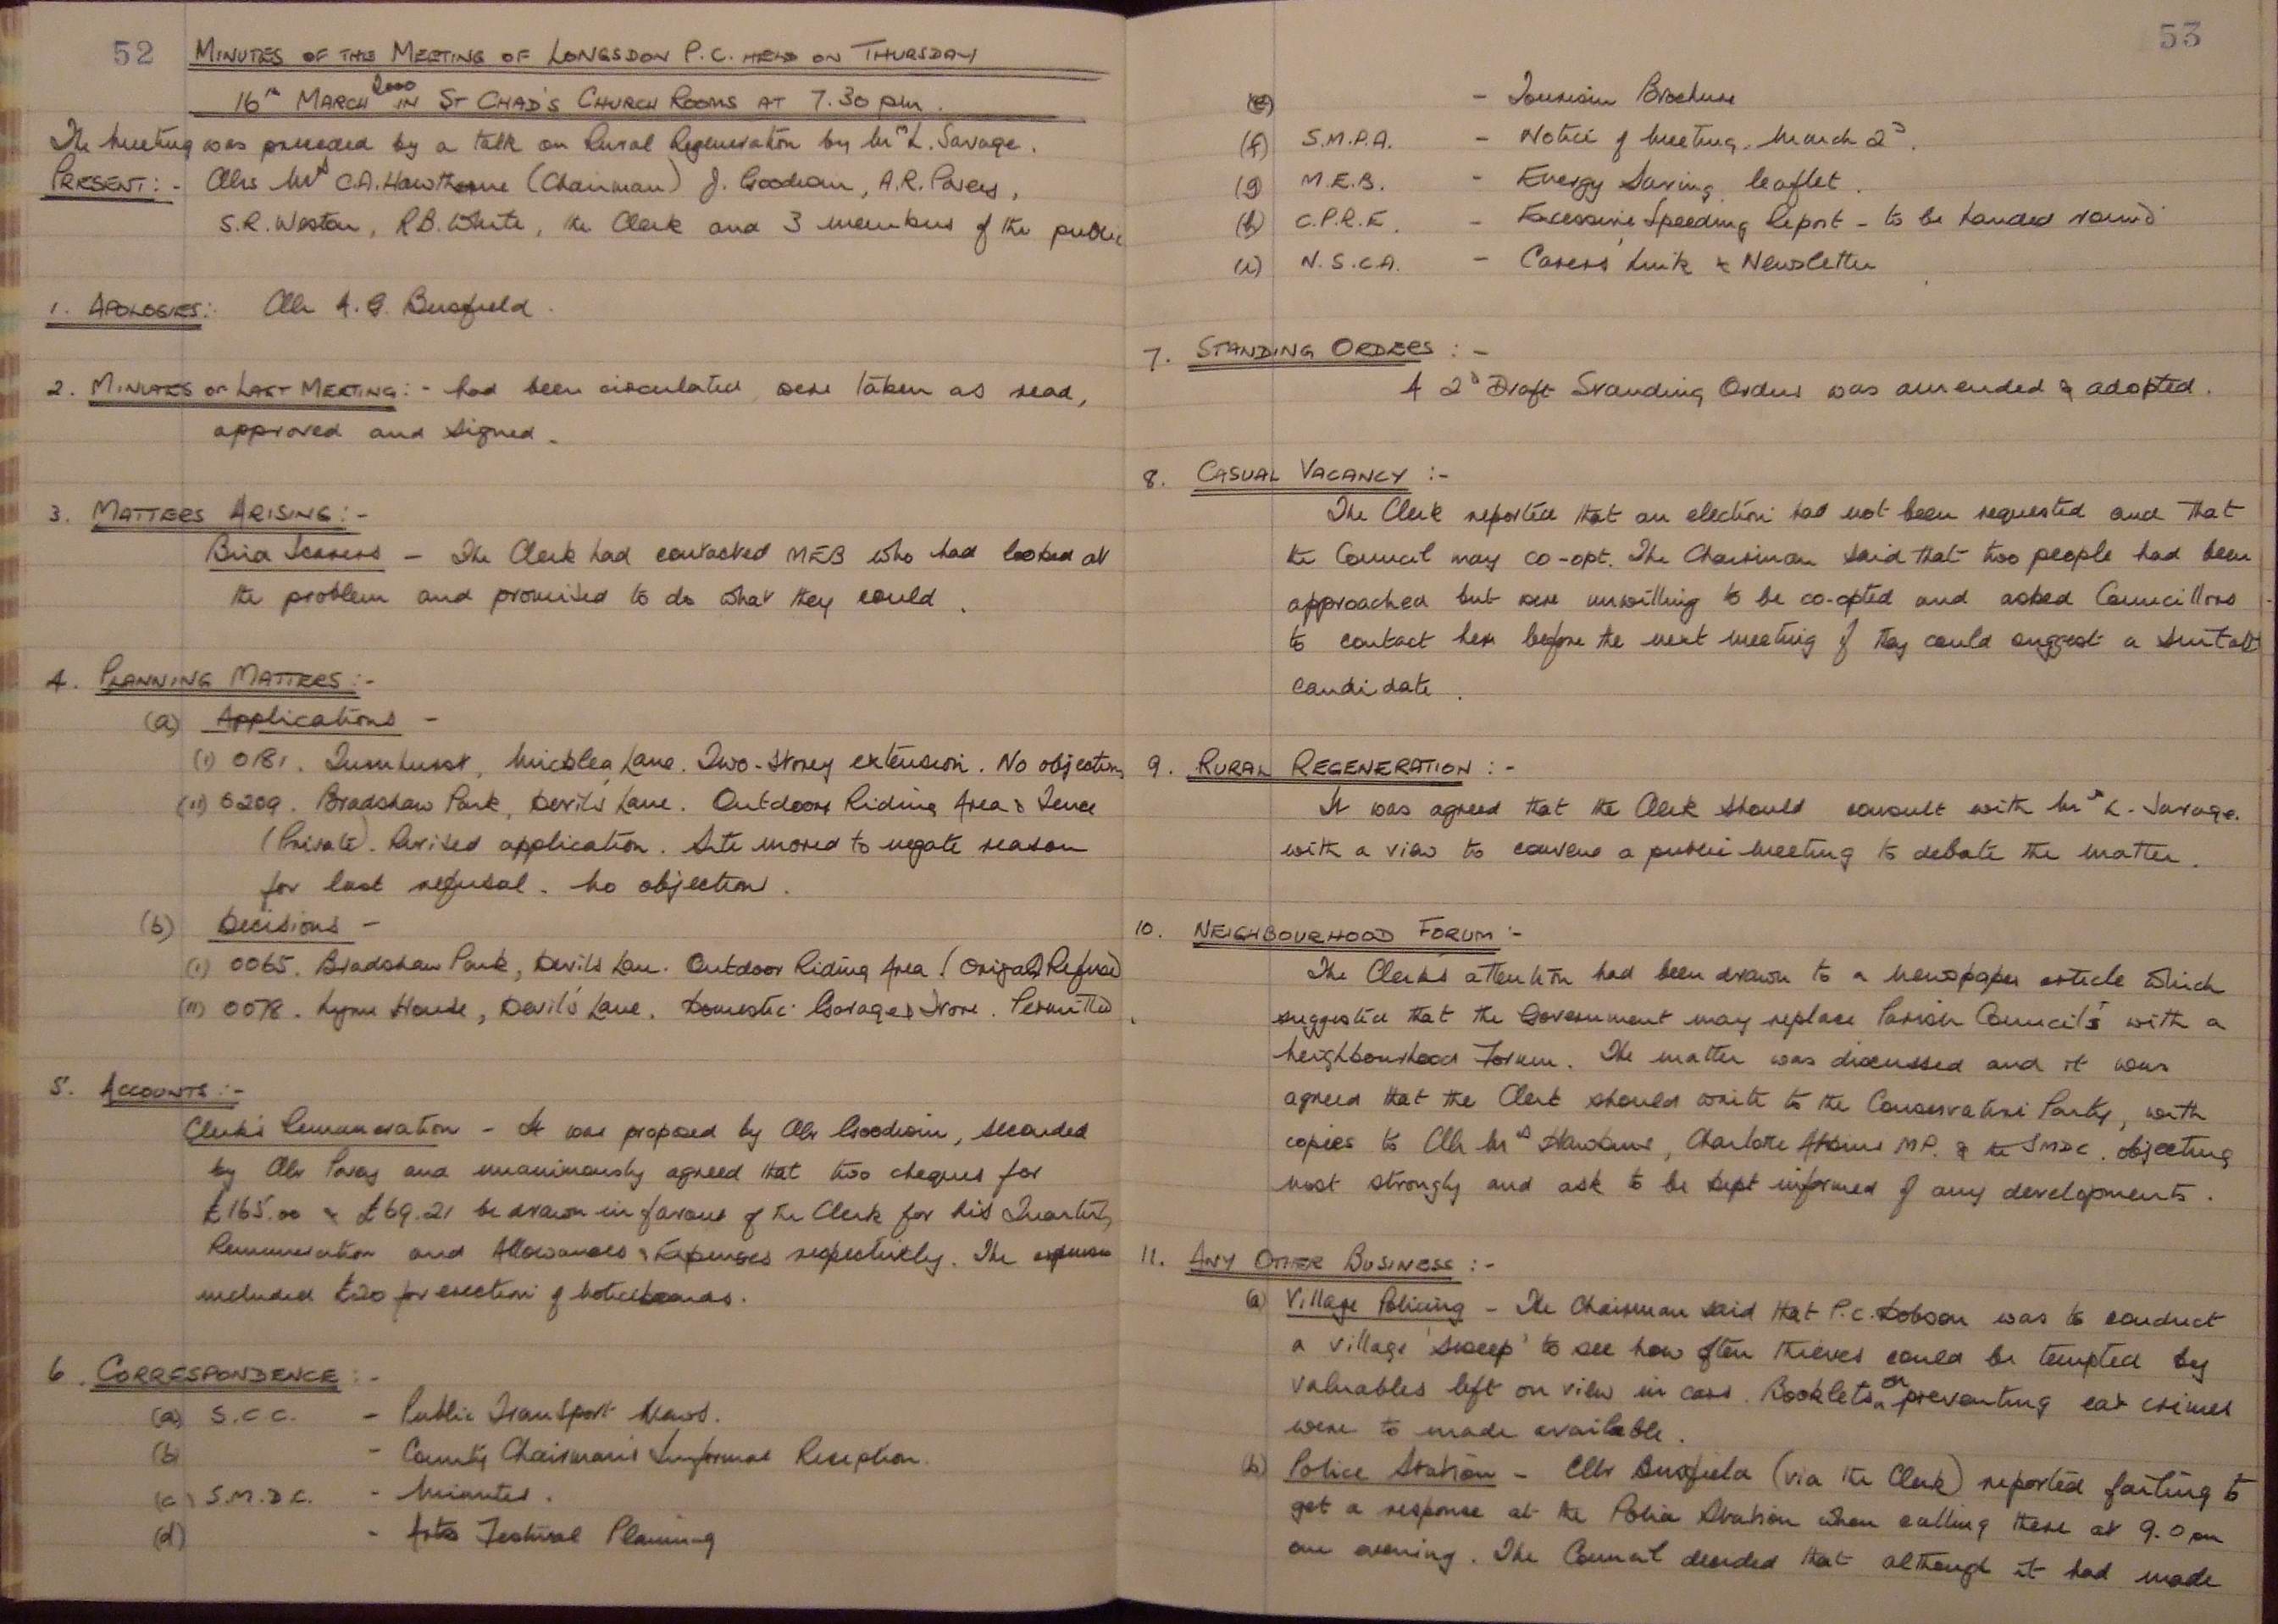 52
MINUTES OF THE MEETING OF LONGSDON P.C. HELD ON THURSDAY
16th MARCH 2000 IN ST CHAD'S CHURCH ROOMS AT 7.30 pm.
The meeting was preceded by a talk on Rural Regeneration by Mrs L. Savage.
PRESENT:- Cllrs Mrs C.A. Hawthorne (Chairman) J. Goodwin, A.R. Povey,
S.R. Weston, R.B. White, the Clerk and 3 members of the public
1. APOLOGIES: Cllr A.G. Busfield.
2. MINUTES OF LAST MEETING:- had been circulated, were taken as read,
approved and signed.
3. MATTERS ARISING:-
Bird Scarers - The Clerk had contacted MEB who had looked at
the problem and promised to do what they could.
4. PLANNING MATTERS:-
(a) Applications -
(i) 0181. Turnhurst, Micklea Lane. Two-storey extension. No objection
(ii) 0209. Bradshaw Park, Devil's Lane. Outdoor Riding Area & Fence
(Private). Revised application. Site moved to negate reason
for last refusal. No objection.
(b) Decisions -
(i) 0065. Bradshaw Park, Devil's Lane. Outdoor Riding Area (Original) Refused
(ii) 0078. Lyme House, Devil's Lane. Domestic Garage & Store. Permitted.
5. ACCOUNTS:-
Clerk's Remuneration - It was proposed by Cllr Goodwin, seconded
by Cllr Povey and unanimously agreed that two cheques for
£165.00 & £69.21 be drawn in favour of the Clerk for his Quarterly
Remuneration and Allowances & Expenses respectively. The expenses
included £20 for erection of noticeboards.
6. CORRESPONDENCE:-
(a) S.C.C. - Public Transport News.
(b) - County Chairman's Informal Reception.
(c) S.M.D.C. - Minutes.
(d) - Arts Festival Planning
53
(e) - Tourism Brochure
(f) S.M.P.A. - Notice of Meeting. March 2nd.
(g) M.E.B. - Energy Saving leaflet.
(h) C.P.R.E. - Excessive Speeding Report - to be handed round
(i) N.S.C.A. - Carers' Link & Newsletter
7. STANDING ORDERS:-
A 2nd Draft Standing Orders was amended & adopted.
8. CASUAL VACANCY:-
The Clerk reported that an election had not been requested and that
the Council may co-opt. The Chairman said that two people had been
approached but were unwilling to be co-opted and asked Councillors
to contact her before the next meeting if they could suggest a suitable
candidate.
9. RURAL REGENERATION:-
It was agreed that the Clerk should consult with Mrs L. Savage.
with a view to convene a public meeting to debate the matter.
10. NEIGHBOURHOOD FORUM:-
The Clerk's attention had been drawn to a newspaper article which
suggested that the Government may replace Parish Councils with a
Neighbourhood Forum. The matter was discussed and it was
agreed that the Clerk should write to the Conservative Party, with
copies to Cllr Mrs Hawkins, Charlotte Atkins MP. & the SMDC. objecting
most strongly and ask to be kept informed of any developments.
11. ANY OTHER BUSINESS:-
(a) Village Policing - The Chairman said that P.C. Dobson was to conduct
a village 'sweep' to see how often thieves could be tempted by
valuables left on view in cars. Booklets on preventing car crimes
were to made available.
(b) Police Station - Cllr Busfield (via the Clerk) reported failing to
get a response at the Police Station when calling there at 9.0 pm
one evening. The Council decided that although it had made